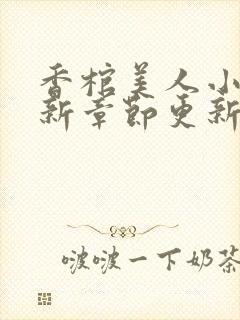 香棺美人小
新章节更新
啵啵一下奶茶